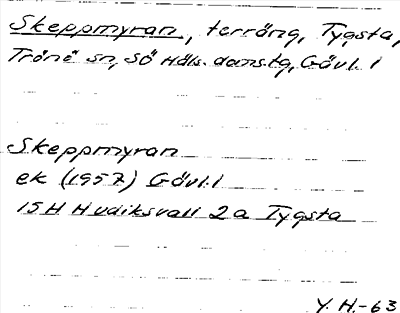 Skeppmyran, terräng, Tygsta,
Trönö sn, SÖ Häls. domstg, Gävl. l
Skeppmyran
ek (1957) Gävl. l
15H Hudiksvall 2a Tygsta
Y. H.-63